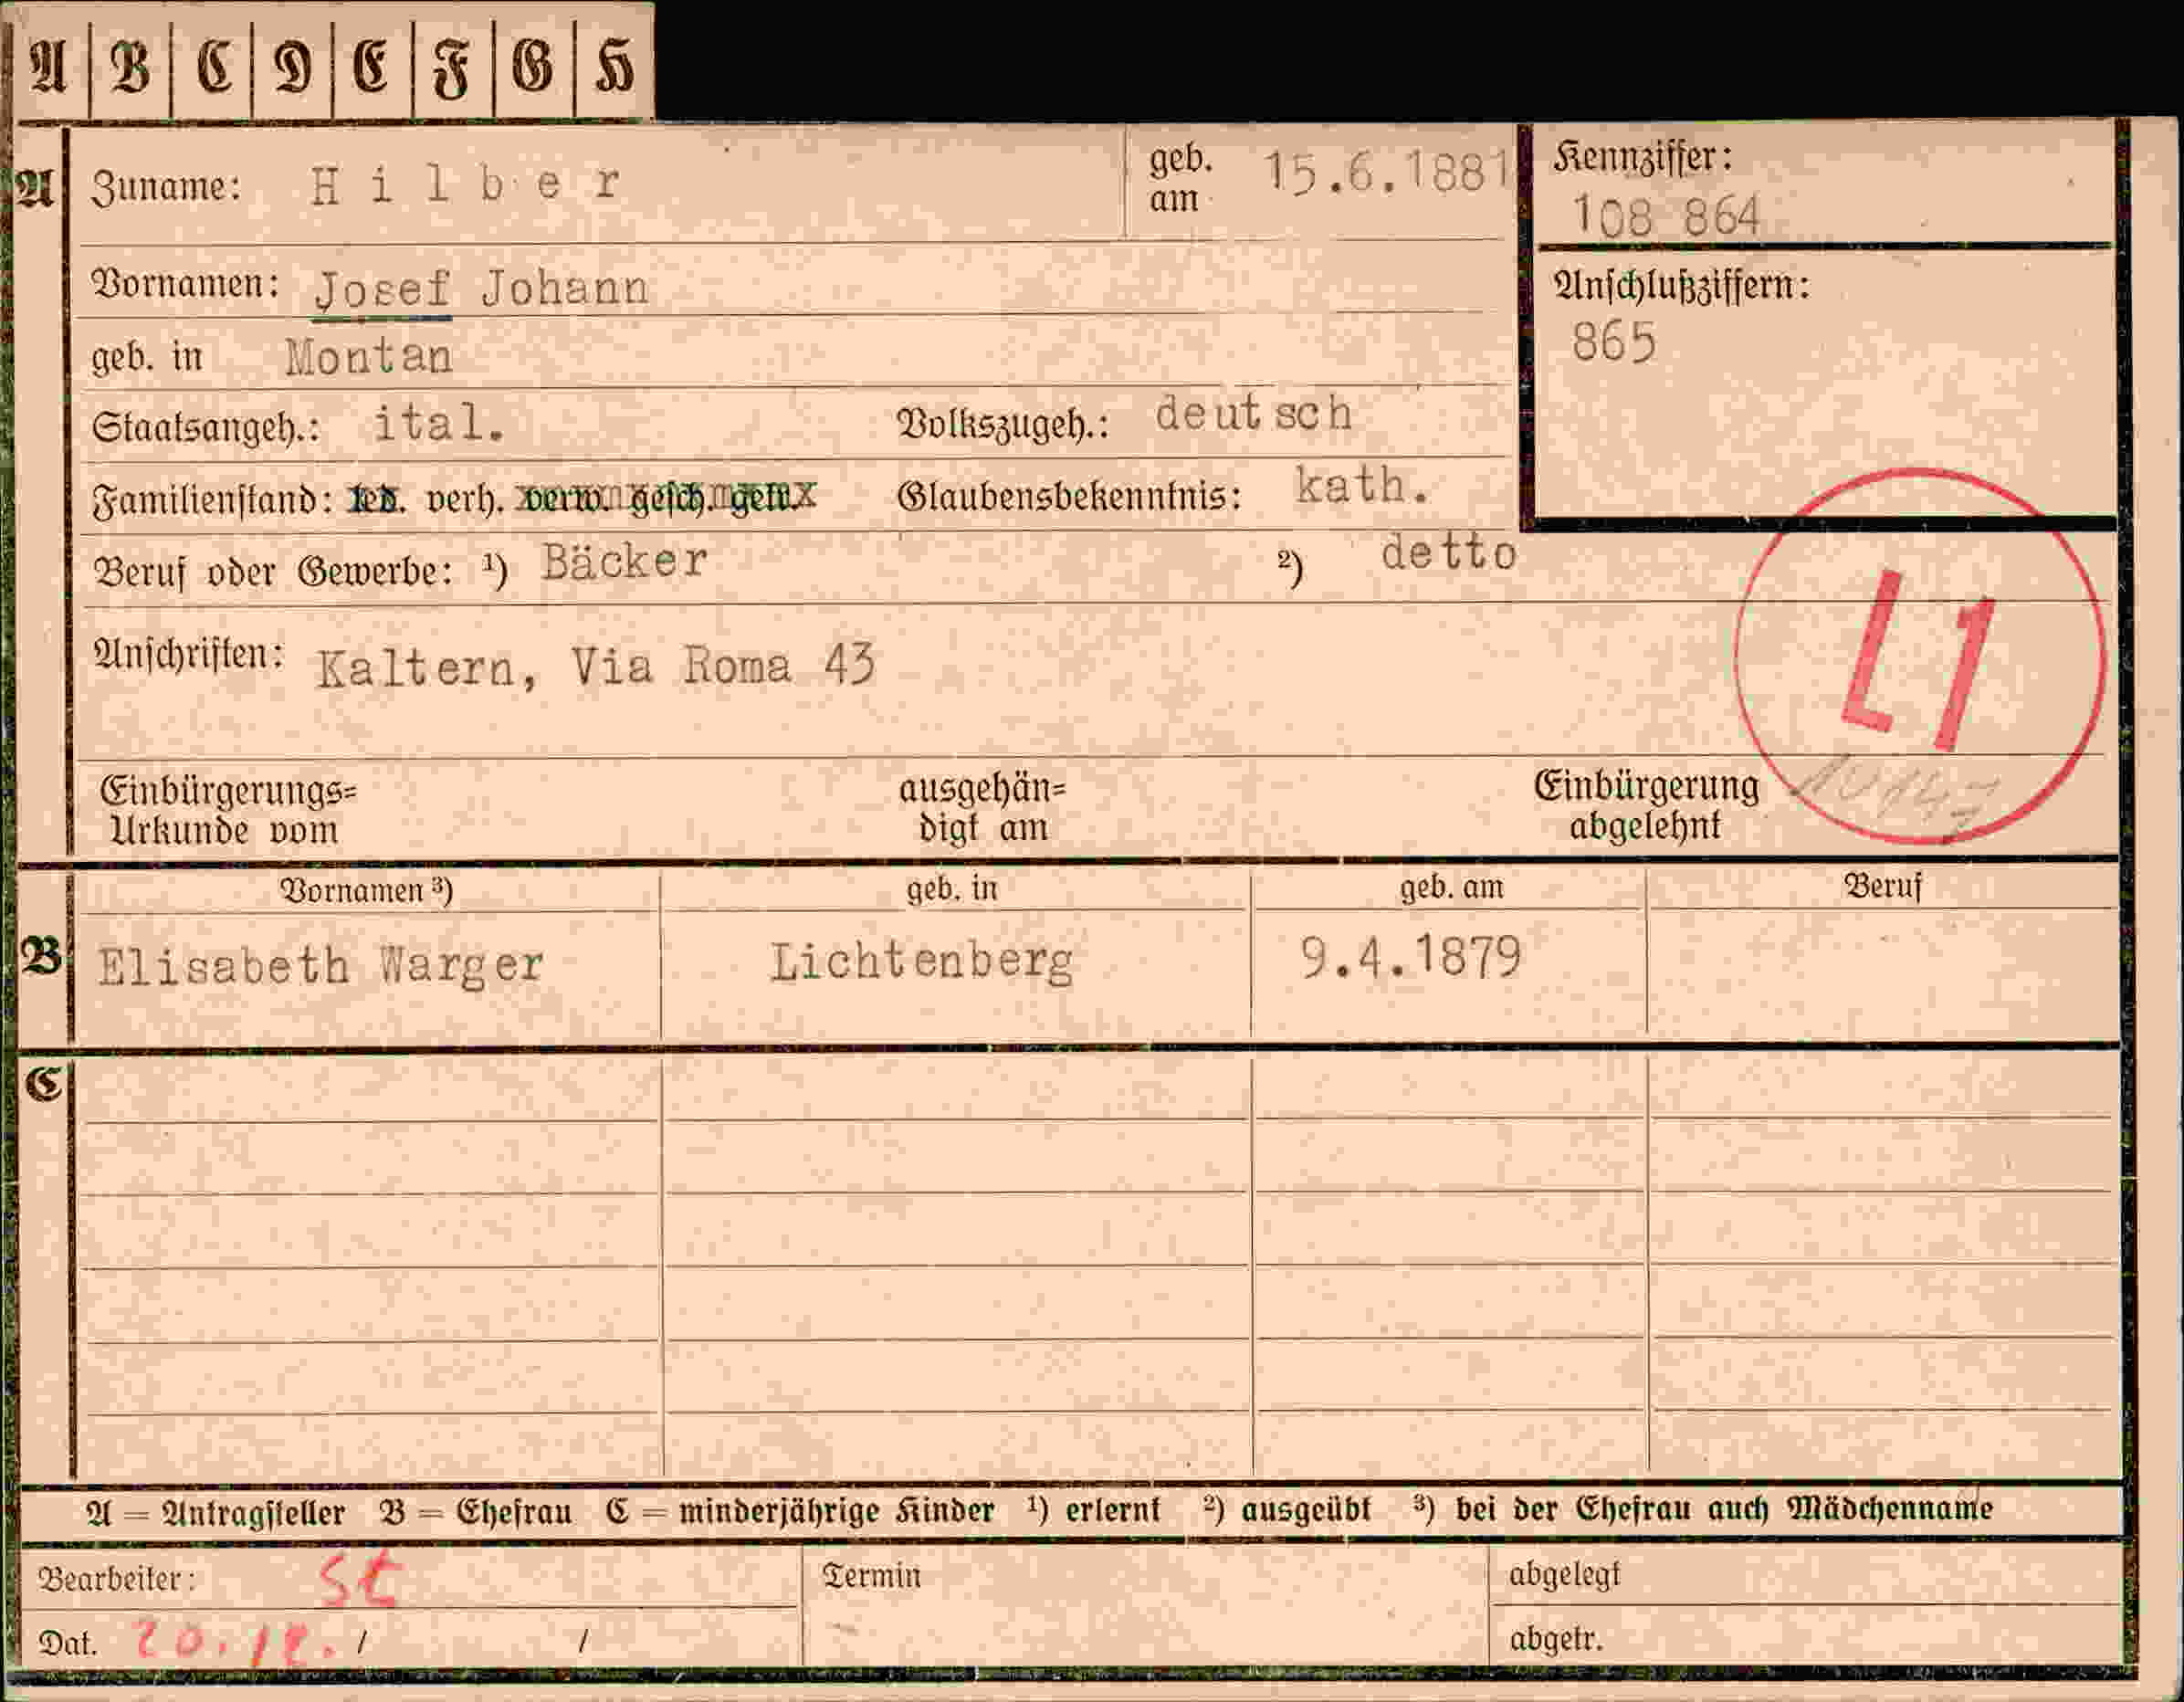 A B C D E F G H
A Zuname: Hilber geb. am 15.6.1881 Kennziffer: 108 864
Vornamen: Josef Johann Anschlußziffern: 865
geb. in Montan
Staatsangeh.: ital. Volkszugeh.: deutsch
Familienstand: led. verh. verw. gesch. getr. Glaubensbekenntnis: kath.
Beruf oder Gewerbe: ¹) Bäcker ²) detto
L1
Anschriften: Kaltern, Via Roma 43
Einbürgerungs= ausgehän= Einbürgerung
Urkunde vom digt am abgelehnt
Vornamen ³) geb. in geb. am Beruf
B Elisabeth Warger Lichtenberg 9.4.1879
C
A = Antragsteller B = Ehefrau C = minderjährige Kinder ¹) erlernt ²) ausgeübt ³) bei der Ehefrau auch Mädchenname
Bearbeiter: St Termin abgelegt
Dat. 20.12. / / abgetr.